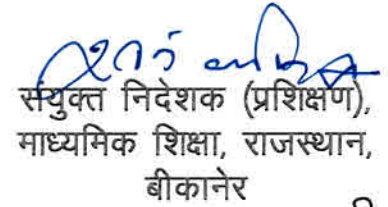 संयुक्त निदेशक (प्रशिक्षण),
माध्यमिक शिक्षा, राजस्थान,
बीकानेर